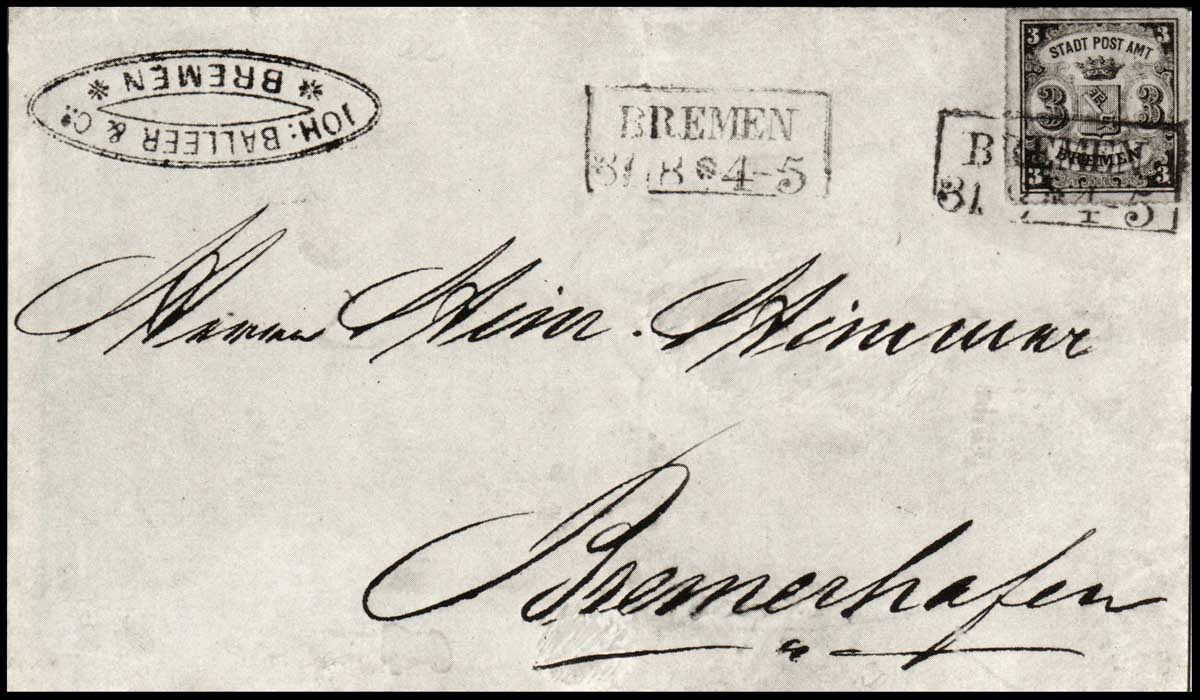 JOH: BALLEER & Cº.
BREMEN
BREMEN
31 8 4-5
3 3
STADT POST AMT
3 3
BREMEN
3 3
BREMEN
31 8 4-5
Herrn Hein. Wimmer
Bremerhafen